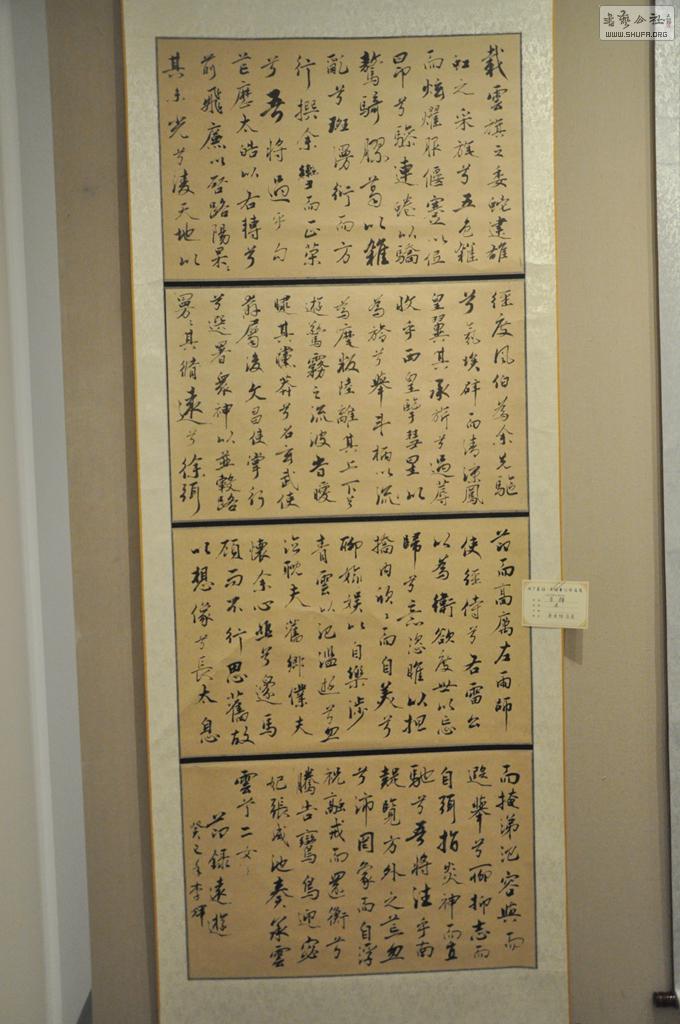 載雲旗之委蛇建雄
虹之采旄兮五色雜
而炫燿服偃蹇以低
昂兮驂連蜷以驕
驁騎膠葛以雜
亂兮斑漫衍而方
行撰余轡而正策
兮吾將過乎句
芒歷太皓以右轉兮
前飛廉以啓路陽杲々
其未光兮凌天地以
徑度風伯為余先驅
兮氛埃辟而清涼鳳
皇翼其承旂兮遇蓐
收乎西皇擥彗星以
為旍兮舉斗柄以流
為麾叛陸離其上下兮
遊驚霧之流波旹曖
曃其曭莽兮召玄武使
奔屬後文昌使掌行
兮選署衆神以並轂路
曼々其脩遠兮徐弭
節而高厲左雨師
使徑侍兮右雷公
以為衛欲度世以忘
歸兮意恣睢以担
撟内欣々而自美兮
聊媮娛以自樂涉
青雲以汎濫遊兮忽
臨睨夫舊鄉僕夫
懷余心悲兮邊馬
顧而不行思舊故
以想像兮長太息
而掩涕氾容與而
遐舉兮聊抑志而
自弭指炎神而直
馳兮吾將往乎南
疑覽方外之荒忽
兮沛罔象而自浮
祝融戒而還衡兮
騰告鸞鳥迎宓
妃張咸池奏承雲
雲兮二女
節錄遠遊
癸巳年李輝
書藝公社
WWW.SHUFA.ORG